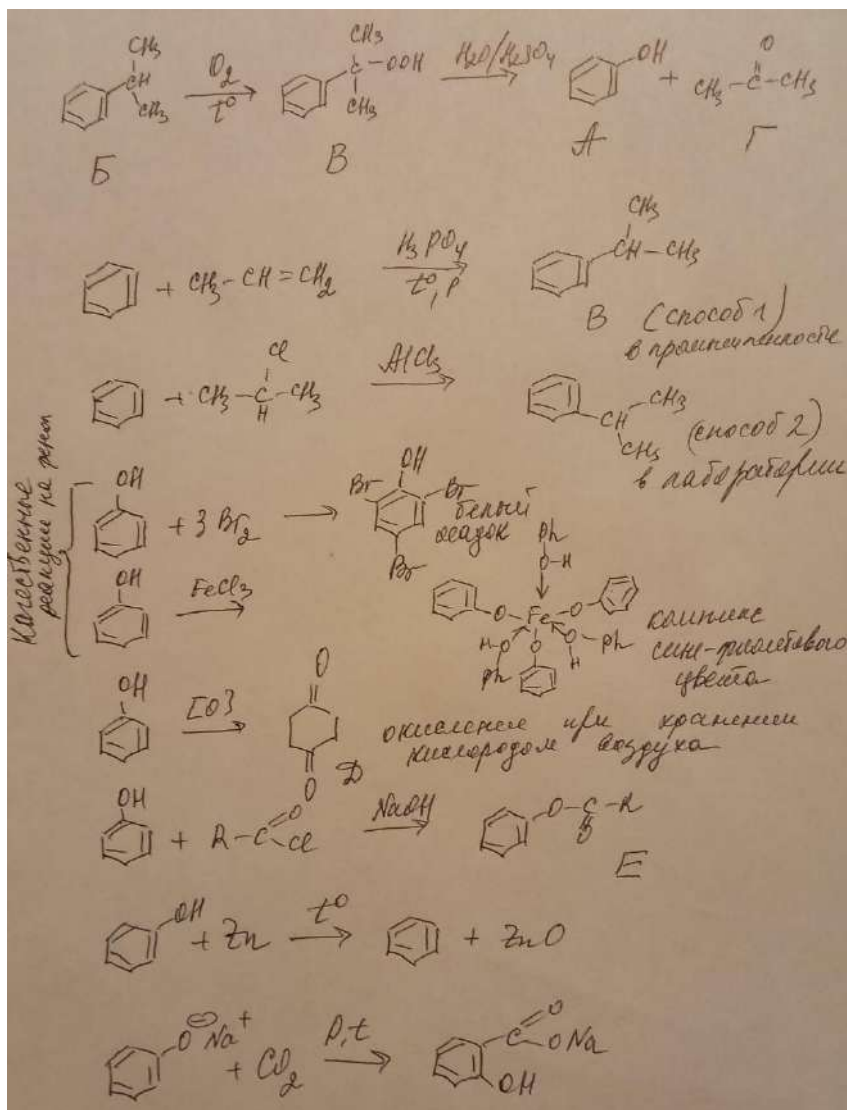 CH3 CH3
CH O2 C-OOH H2O/H2SO4 OH O
CH3 t° CH3 + CH3-C-CH3
Б В А Г
CH3
+ CH3-CH=CH2 H3PO4 CH-CH3
t°, P
В (способ 1)
в промышленности
Cl
+ CH3-C-CH3 AlCl3 CH3
H CH
CH3 (способ 2)
в лаборатории
Качественные
реакции на фенол
OH OH
+ 3 Br2 Br Br
Br белый
осадок
OH FeCl3 Ph
O-H
O-Fe-O
H-O O O-Ph
Ph H
комплекс
сине-фиолетового
цвета
OH [O] O
O Д
окисление при хранении
кислородом воздуха
OH + R-C O Cl NaOH O-C-R
O
Е
OH + Zn t° + ZnO
O⊖Na+ + CO2 P, t C O ONa
OH